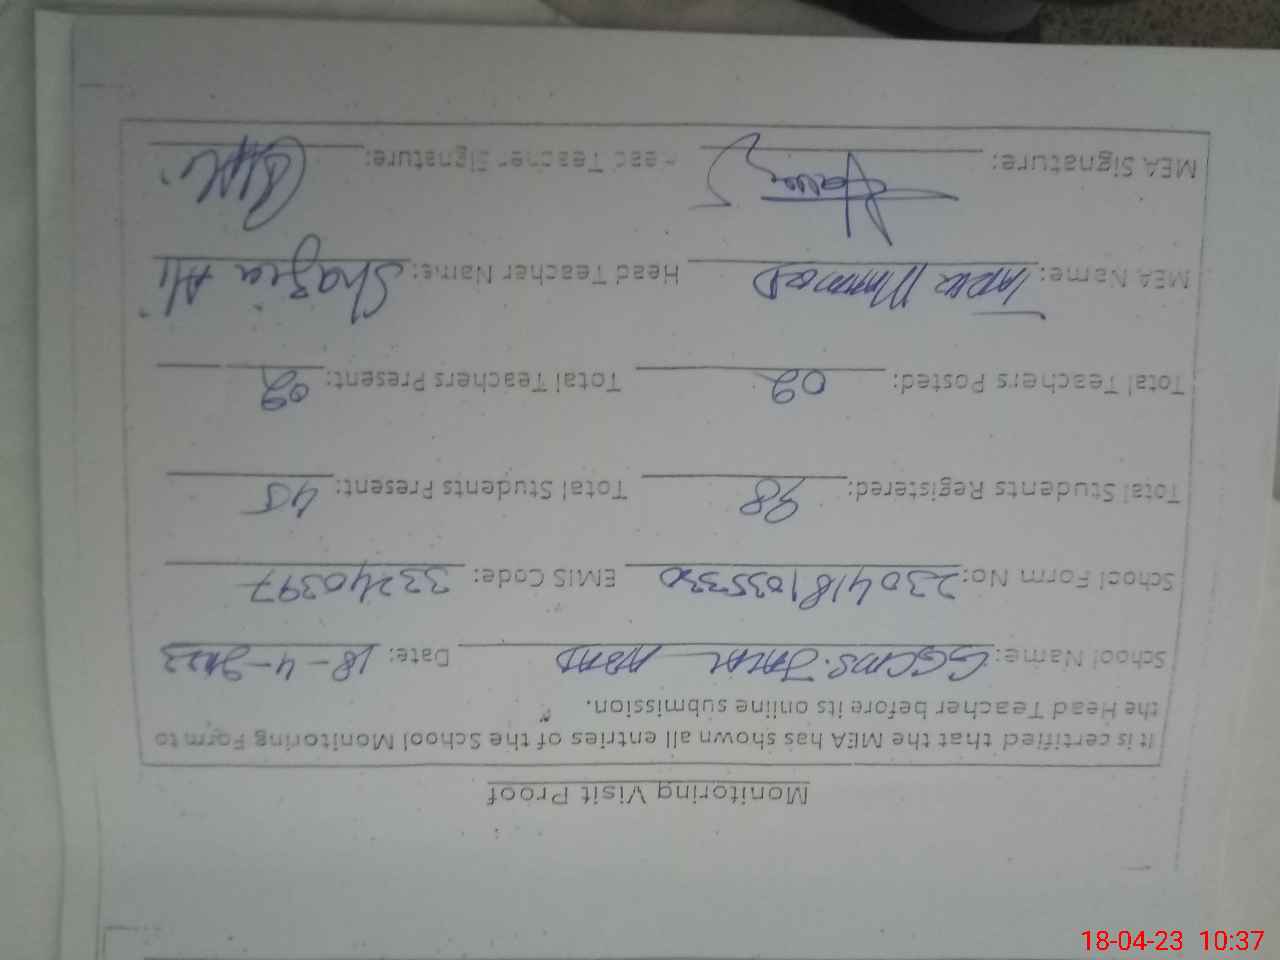 Monitoring Visit Proof
It is certified that the MEA has shown all entries of the School Monitoring Form to
the Head Teacher before its online submission.
School Name: GGCMS. JALAL ABAD Date: 18-4-2023
School Form No: 230418103533 EMIS Code: 33240397
Total Students Registered: 98 Total Students Present: 45
Total Teachers Posted: 02 Total Teachers Present: 02
MEA Name: Head Teacher Name: Shazia Ali
MEA Signature: Head Teacher Signature:
18-04-23 10:37